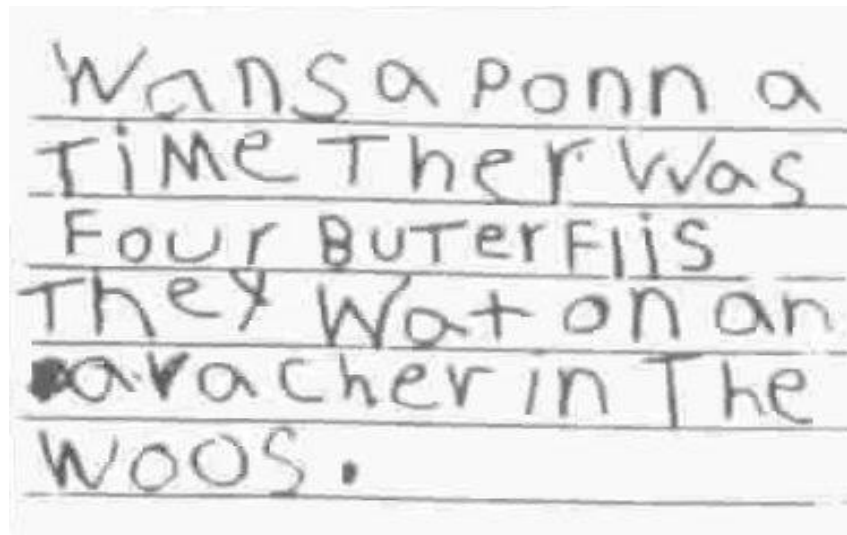 Wansa Ponn a
TiMe Ther Was
Four BuTerFlis
They Wat on an
avacher in The
WOOS.